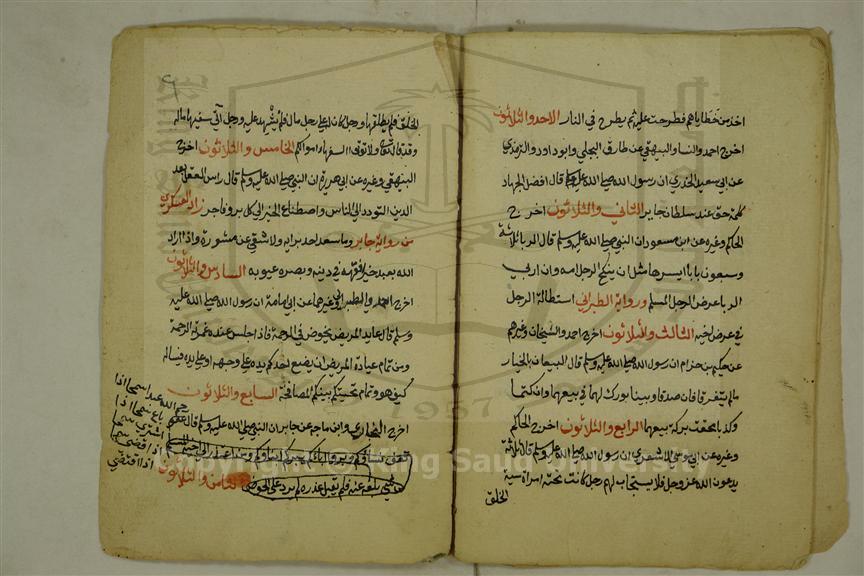 اخذ من خطاياهم فطرحت عليه ثم يطرح في النار الاحد والثلاثون
اخرج احمد والنسا والبيهقي عن طارق البجلي وابو داود والترمذي
عن ابي سعيد الخدري ان رسول الله صلى الله عليه وسلم قال افضل الجهاد
كلمة حق عند سلطان جاير الثاني والثلاثون اخرج
الحاكم وغيره عن ابن مسعود ان النبي صلى الله عليه وسلم قال الربا ثلاثة
وسبعون بابا ايسرها مثل ان ينكح الرجل امه وان اربى
الربا عرض الرجل المسلم ورواية الطبراني استطالة الرجل
في عرض اخيه الثالث والثلاثون اخرج احمد والشيخان وغيرهم
عن حكيم بن حزام ان رسول الله صلى الله عليه وسلم قال البيعان بالخيار
مالم يتفرقا فان صدقا وبينا بورك لهما في بيعهما وان كتما
وكذبا محقت بركة بيعهما الرابع والثلاثون اخرج الحاكم
وغيره عن ابي موسى الاشعري ان رسول الله صلى الله عليه وسلم قال ثلاثة
يدعون الله عز وجل فلا يستجاب لهم رجل كانت تحته امراة سيئة
الخلق
الخلق فلم يطلقها ورجل كان له على رجل مال فلم يشهد عليه ورجل آتى سفيها ماله
وقد قال الله ولا تؤتوا السفهاء اموالكم الخامس والثلاثون اخرج
البيهقي وغيره عن ابي هريرة ان النبي صلى الله عليه وسلم قال راس العقل بعد
الدين التودد الى الناس واصطناع الخير الى كل بر وفاجر زاد العسكري
من رواية جابر وما سعد احد برايه ولا شقي عن مشورة واذا اراد
الله بعبد خيرا فقهه في دينه وبصره عيوبه السادس والثلاثون
اخرج احمد والطبراني وغيرهما عن ابي امامة ان رسول الله صلى الله عليه
وسلم قال عايد المريض يخوض في الرحمة فاذا جلس عنده غمرته الرحمة
ومن تمام عيادة المريض ان يضع احدكم يده على وجهه او على يده فيساله
كيف هو وتمام تحيتكم بينكم المصافحة السابع والثلاثون
اخرج البخاري وابن ماجه عن جابر ان النبي صلى الله عليه وسلم قال
رحم الله عبدا سمحا اذا
باع سمحا اذا
اشترى سمحا
اذا قضى سمحا
اذا اقتضى
فلم يقبل عذره لم يرد على الحوض
الثامن والثلاثون
Copyright © King Saud University
1957